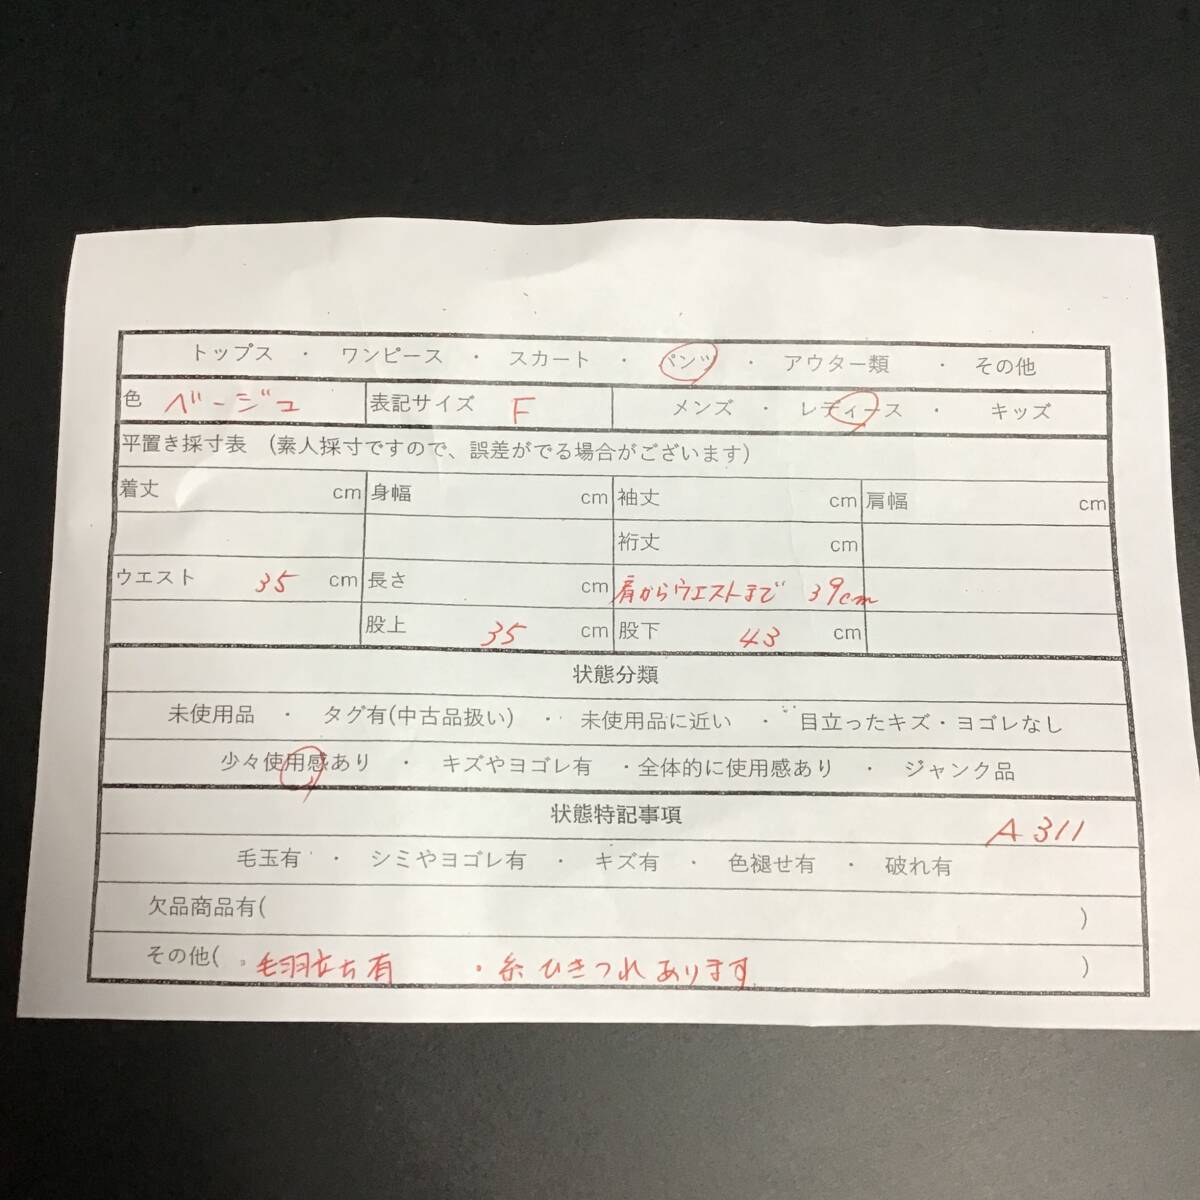 トップス ・ ワンピース ・ スカート ・ パンツ ・ アウター類 ・ その他
色 ベージュ 表記サイズ F メンズ ・ レディース ・ キッズ
平置き採寸表 (素人採寸ですので、誤差がでる場合がございます)
着丈 cm 身幅 cm 袖丈 cm 肩幅 cm
裄丈 cm
ウエスト 35 cm 長さ cm 肩からウエストまで 39cm
股上 35 cm 股下 43 cm
状態分類
未使用品 ・ タグ有(中古品扱い) ・ 未使用品に近い ・ 目立ったキズ・ヨゴレなし
少々使用感あり ・ キズやヨゴレ有 ・全体的に使用感あり ・ ジャンク品
状態特記事項 A311
毛玉有 ・ シミやヨゴレ有 ・ キズ有 ・ 色褪せ有 ・ 破れ有
欠品商品有( )
その他( ・毛羽立ち有 ・糸ひきつれあります )